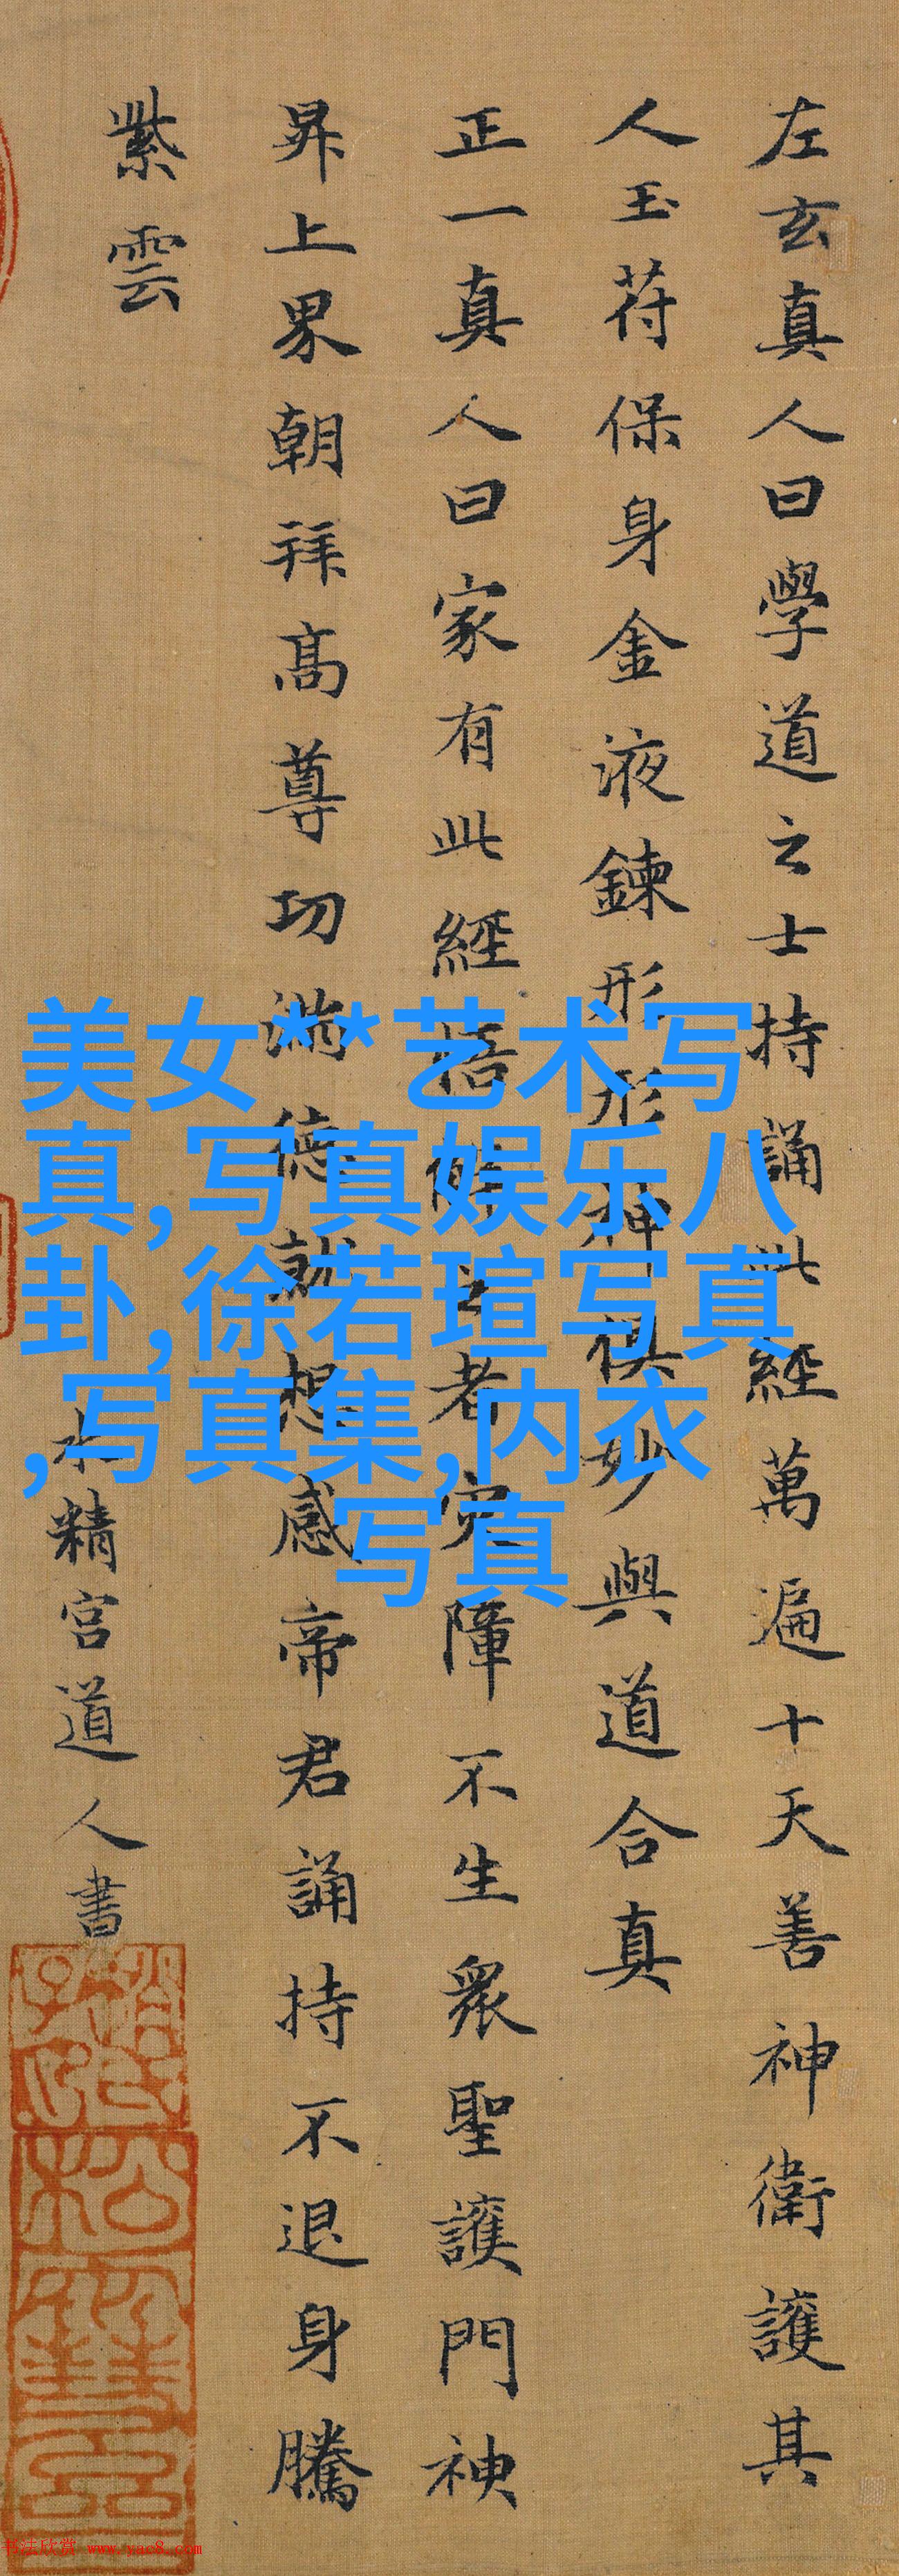 左玄真人曰學道之士持誦此經萬遍十天善神衛護其
人玉苻保身金液鍊形形神俱妙與道合真
正一真人曰家有此經悟解之者灾障不生衆聖護門神
昇上界朝拜髙尊功滿德就想感帝君誦持不退身騰
紫雲
水精宮道人書
美女**艺术写
真,写真娱乐八
卦,徐若瑄写真
,写真集,内衣
写真
书法欣赏 www.yac8.com